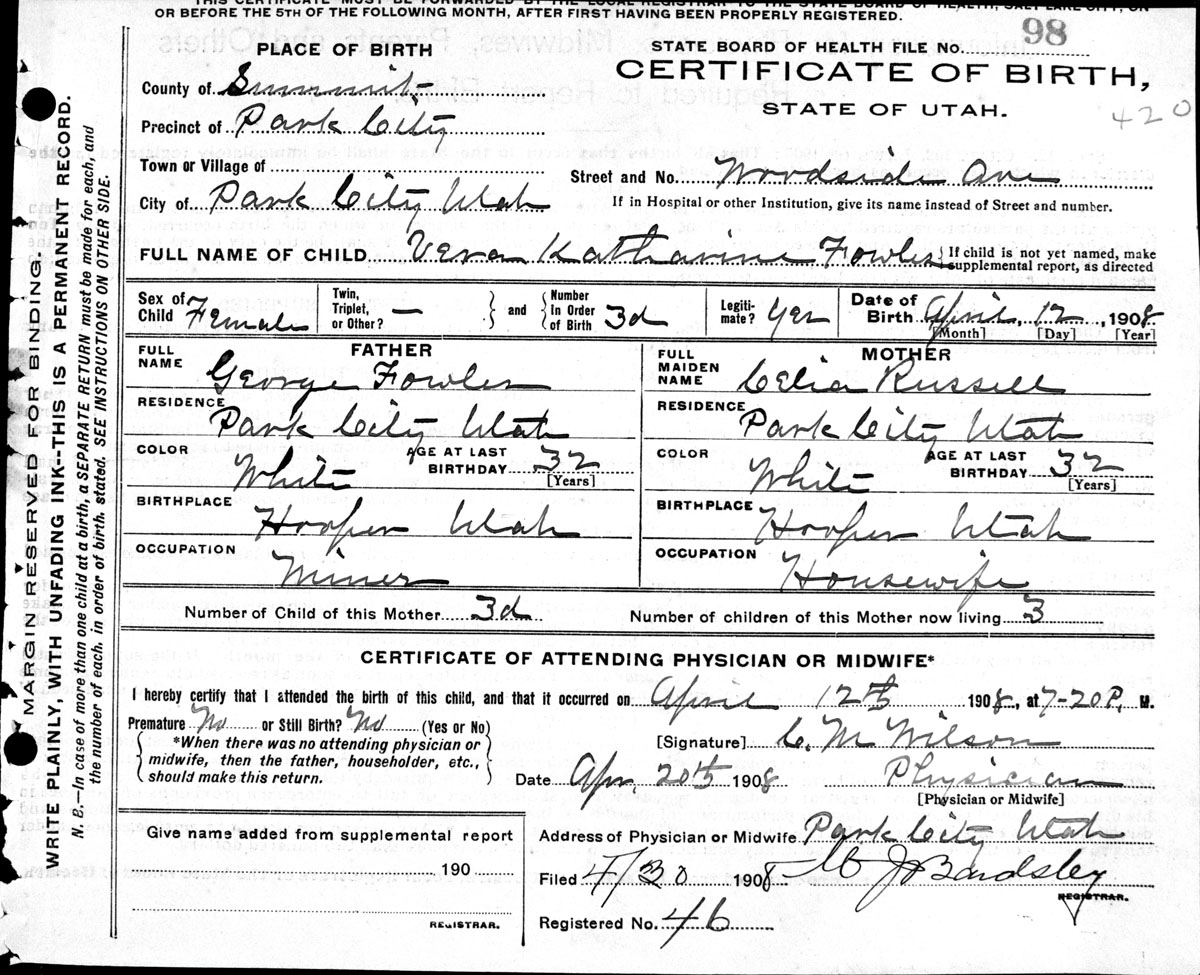 THIS CERTIFICATE MUST BE FORWARDED BY THE LOCAL REGISTRAR TO THE STATE BOARD OF HEALTH, SALT LAKE CITY, ON
OR BEFORE THE 5TH OF THE FOLLOWING MONTH, AFTER FIRST HAVING BEEN PROPERLY REGISTERED.
PLACE OF BIRTH
STATE BOARD OF HEALTH FILE No. 98
County of Summit
CERTIFICATE OF BIRTH,
STATE OF UTAH.
420
Precinct of Park City
Town or Village of
Street and No. Woodside Ave
City of Park City Utah
If in Hospital or other Institution, give its name instead of Street and number.
FULL NAME OF CHILD Vera Katharine Fowler { If child is not yet named, make
supplemental report, as directed
Sex of Child Female
Twin, Triplet, or Other? —
} and {
Number In Order of Birth 3d
Legiti-mate? Yes
Date of Birth April, 12, 1908
[Month] [Day] [Year]
FATHER
FULL NAME George Fowler
RESIDENCE Park City Utah
COLOR White AGE AT LAST BIRTHDAY 32
[Years]
BIRTHPLACE Hooper Utah
OCCUPATION Miner
MOTHER
FULL MAIDEN NAME Celia Russell
RESIDENCE Park City Utah
COLOR White AGE AT LAST BIRTHDAY 32
[Years]
BIRTHPLACE Hooper Utah
OCCUPATION Housewife
Number of Child of this Mother 3d Number of children of this Mother now living 3
CERTIFICATE OF ATTENDING PHYSICIAN OR MIDWIFE*
I hereby certify that I attended the birth of this child, and that it occurred on April 12th 1908, at 7-20 P. M.
Premature No or Still Birth? No (Yes or No)
{ *When there was no attending physician or
midwife, then the father, householder, etc.,
should make this return. }
[Signature] C. M Wilson
Date Apr. 20th 1908 Physician
[Physician or Midwife]
Give name added from supplemental report
190
REGISTRAR.
Address of Physician or Midwife Park City Utah
Filed 4/30 1908 J Bardsley
REGISTRAR.
Registered No. 46
MARGIN RESERVED FOR BINDING.
WRITE PLAINLY, WITH UNFADING INK--THIS IS A PERMANENT RECORD.
N. B.—In case of more than one child at a birth, a SEPARATE RETURN must be made for each, and
the number of each, in order of birth, stated. SEE INSTRUCTIONS ON OTHER SIDE.